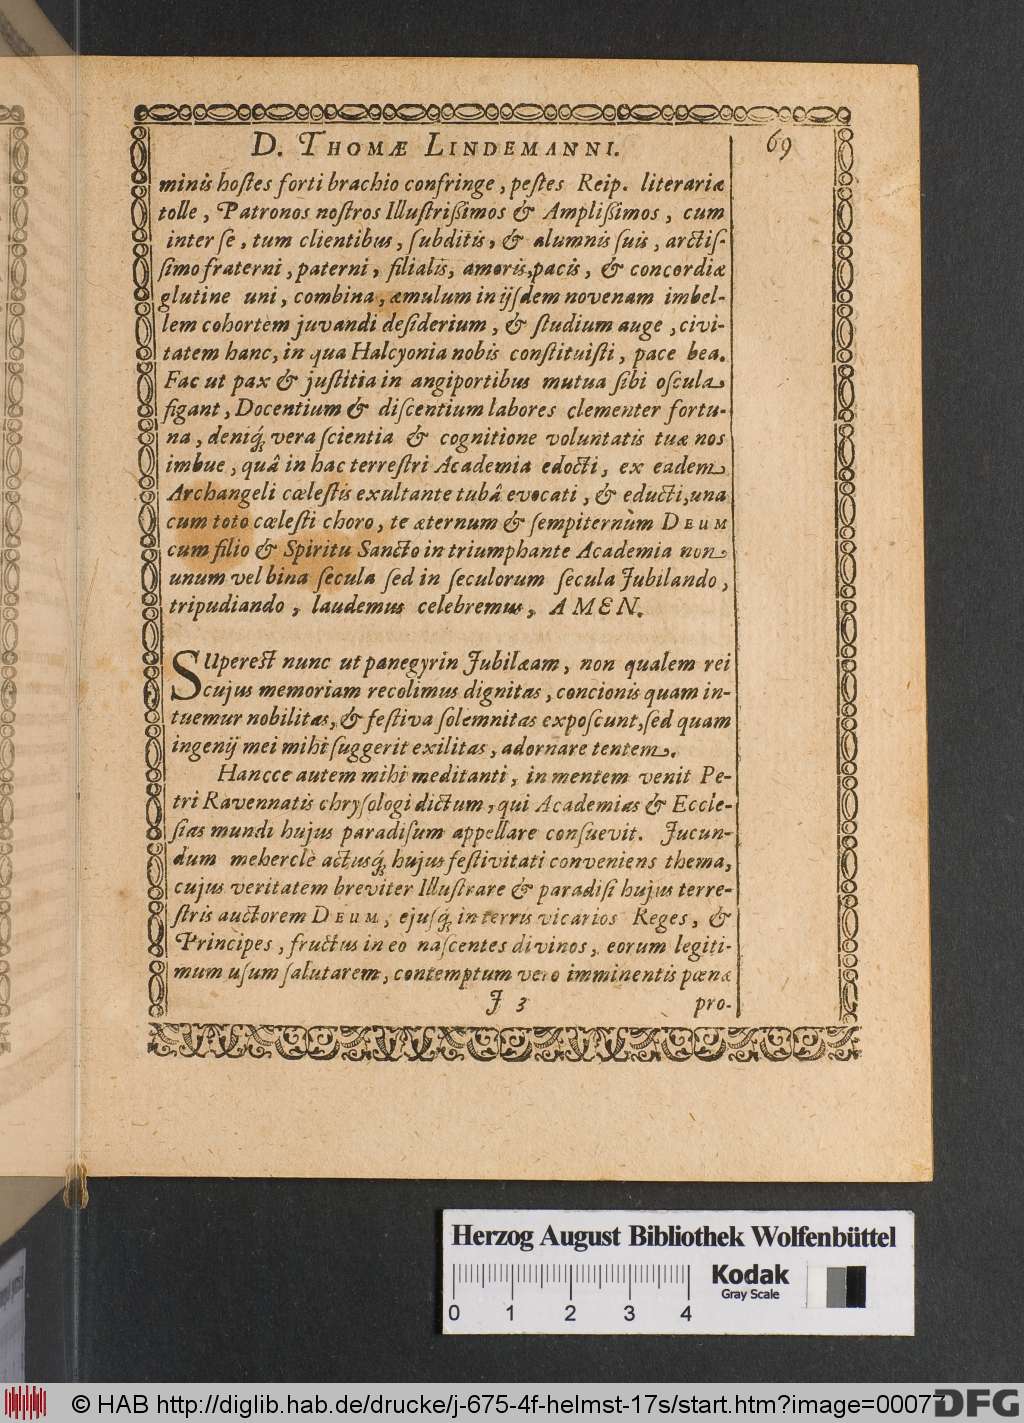 D. THOMÆ LINDEMANNI.
69
minis hostes forti brachio confringe, pestes Reip. literariæ
tolle, Patronos nostros Illustrißimos & Amplißimos, cum
inter se, tum clientibus, subditis, & alumnis suis, arctis-
simo fraterni, paterni, filialis, amoris, pacis, & concordiæ
glutine uni, combina, æmulum in ijsdem novenam imbel-
lem cohortem juvandi desiderium, & studium auge, civi-
tatem hanc, in qua Halcyonia nobis constituisti, pace bea.
Fac ut pax & justitia in angiportibus mutua sibi oscula
figant, Docentium & discentium labores clementer fortu-
na, deniq́; vera scientia & cognitione voluntatis tuæ nos
imbue, quâ in hac terrestri Academia edocti, ex eadem
Archangeli cælestis exultante tubâ evocati, & educti, una
cum toto cælesti choro, te æternum & sempiternùm DEUM
cum filio & Spiritu Sancto in triumphante Academia non
unum vel bina secula sed in seculorum secula Jubilando,
tripudiando, laudemus celebremus, AMEN.
SUperest nunc ut panegyrin Jubilæam, non qualem rei
cujus memoriam recolimus dignitas, concionis quam in-
tuemur nobilitas, & festiva solemnitas exposcunt, sed quam
ingenij mei mihi suggerit exilitas, adornare tentem.
Hancce autem mihi meditanti, in mentem venit Pe-
tri Ravennatis chrysologi dictum, qui Academias & Eccle-
sias mundi hujus paradisum appellare consuevit. Jucun-
dum meherclè actusq́; hujus festivitati conveniens thema,
cujus veritatem breviter Illustrare & paradisi hujus terre-
stris auctorem DEUM, ejusq́; in terris vicarios Reges, &
Principes, fructus in eo nascentes divinos, eorum legiti-
mum usum salutarem, contemptum vero imminentis pœnæ
J 3
pro-
Herzog August Bibliothek Wolfenbüttel
Kodak
Gray Scale
0 1 2 3 4
© HAB http://diglib.hab.de/drucke/j-675-4f-helmst-17s/start.htm?image=00077
DFG